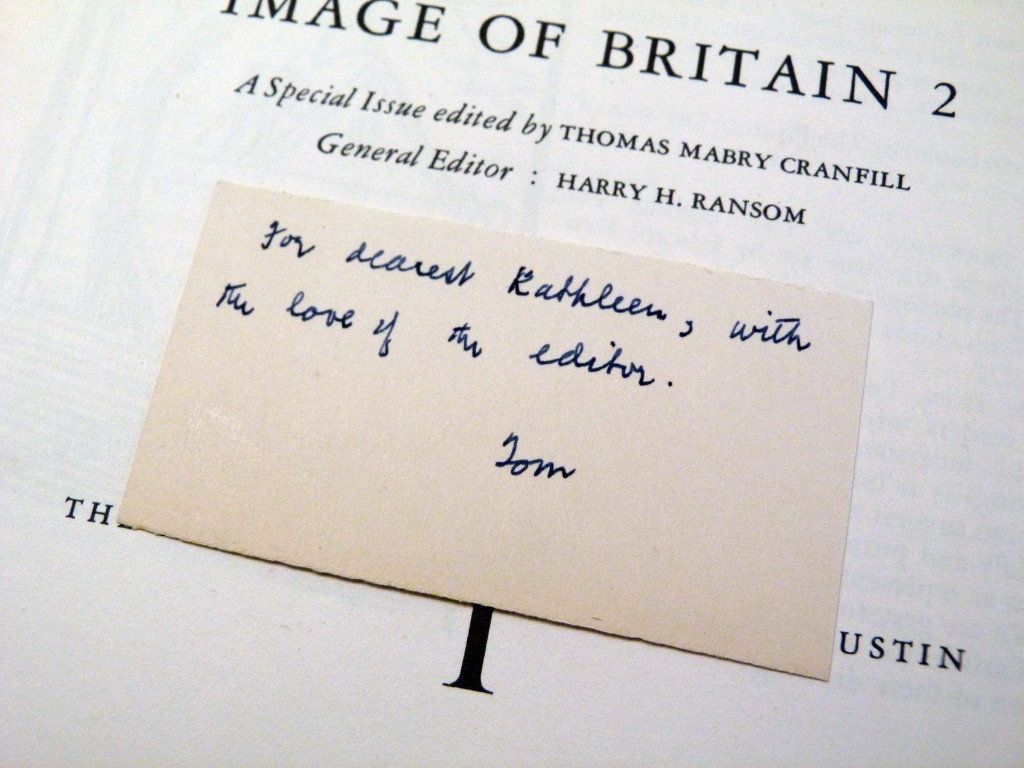 IMAGE OF BRITAIN 2
A Special Issue edited by THOMAS MABRY CRANFILL
General Editor : HARRY H. RANSOM
For dearest Kathleen, with
the love of the editor.
Tom
THE
USTIN